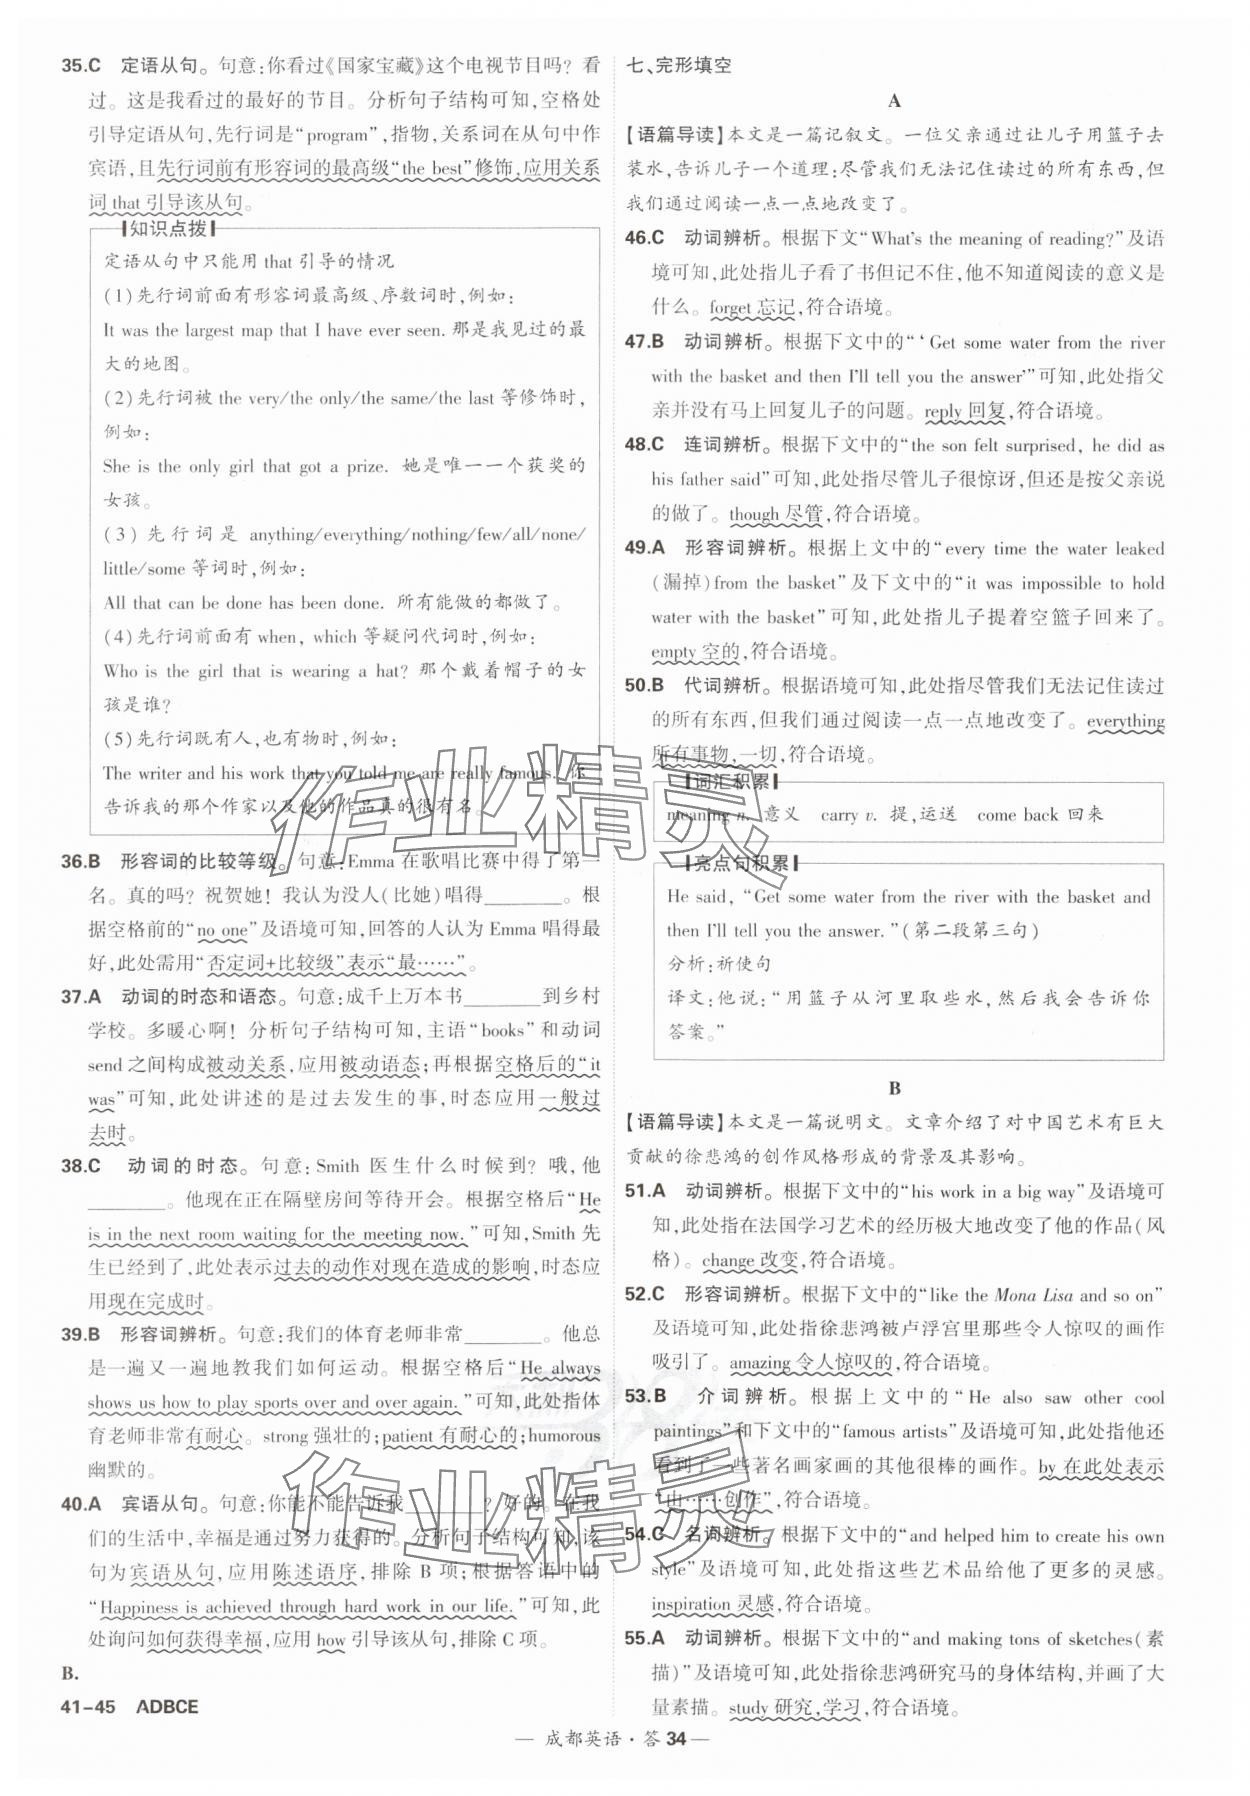 35.C 定语从句。句意:你看过《国家宝藏》这个电视节目吗？看
过。这是我看过的最好的节目。分析句子结构可知,空格处
引导定语从句,先行词是“program”,指物,关系词在从句中作
宾语,且先行词前有形容词的最高级“the best”修饰,应用关系
词 that 引导该从句。
知识点拨
定语从句中只能用 that 引导的情况
(1)先行词前面有形容词最高级、序数词时,例如:
It was the largest map that I have ever seen. 那是我见过的最
大的地图。
(2)先行词被 the very/the only/the same/the last 等修饰时,
例如:
She is the only girl that got a prize. 她是唯一一个获奖的
女孩。
(3)先行词是 anything/everything/nothing/few/all/none/
little/some 等词时,例如:
All that can be done has been done. 所有能做的都做了。
(4)先行词前面有 when, which 等疑问代词时,例如:
Who is the girl that is wearing a hat? 那个戴着帽子的女
孩是谁?
(5)先行词既有人,也有物时,例如:
The writer and his work that you told me are really famous. 你
告诉我的那个作家以及他的作品真的很有名。
36.B 形容词的比较等级。句意:Emma 在歌唱比赛中得了第一
名。真的吗？祝贺她！我认为没人(比她)唱得________。根
据空格前的“no one”及语境可知,回答的人认为 Emma 唱得最
好,此处需用“否定词+比较级”表示“最……”。
37.A 动词的时态和语态。句意:成千上万本书________到乡村
学校。多暖心啊！分析句子结构可知,主语“books”和动词
send 之间构成被动关系,应用被动语态;再根据空格后的“it
was”可知,此处讲述的是过去发生的事,时态应用一般过
去时。
38.C 动词的时态。句意:Smith 医生什么时候到？哦,他
________。他现在正在隔壁房间等待开会。根据空格后“He
is in the next room waiting for the meeting now.”可知,Smith 先
生已经到了,此处表示过去的动作对现在造成的影响,时态应
用现在完成时。
39.B 形容词辨析。句意:我们的体育老师非常________。他总
是一遍又一遍地教我们如何运动。根据空格后“He always
shows us how to play sports over and over again.”可知,此处指体
育老师非常有耐心。strong 强壮的;patient 有耐心的;humorous
幽默的。
40.A 宾语从句。句意:你能不能告诉我________？好的。在我
们的生活中,幸福是通过努力获得的。分析句子结构可知,该
句为宾语从句,应用陈述语序,排除 B 项;根据答语中的
“Happiness is achieved through hard work in our life.”可知,此
处询问如何获得幸福,应用 how 引导该从句,排除 C 项。
B.
41-45 ADBCE
七、完形填空
A
【语篇导读】本文是一篇记叙文。一位父亲通过让儿子用篮子去
装水,告诉儿子一个道理:尽管我们无法记住读过的所有东西,但
我们通过阅读一点一点地改变了。
46.C 动词辨析。根据下文“What's the meaning of reading?”及语
境可知,此处指儿子看了书但记不住,他不知道阅读的意义是
什么。forget 忘记,符合语境。
47.B 动词辨析。根据下文中的“‘Get some water from the river
with the basket and then I'll tell you the answer'”可知,此处指父
亲并没有马上回复儿子的问题。reply 回复,符合语境。
48.C 连词辨析。根据下文中的“the son felt surprised, he did as
his father said”可知,此处指尽管儿子很惊讶,但还是按父亲说
的做了。though 尽管,符合语境。
49.A 形容词辨析。根据上文中的“every time the water leaked
(漏掉)from the basket”及下文中的“it was impossible to hold
water with the basket”可知,此处指儿子提着空篮子回来了。
empty 空的,符合语境。
50.B 代词辨析。根据语境可知,此处指尽管我们无法记住读过
的所有东西,但我们通过阅读一点一点地改变了。everything
所有事物,一切,符合语境。
词汇积累
meaning n. 意义 carry v. 提,运送 come back 回来
亮点句积累
He said, “Get some water from the river with the basket and
then I'll tell you the answer.”(第二段第三句)
分析:祈使句
译文:他说:“用篮子从河里取些水,然后我会告诉你
答案。”
B
【语篇导读】本文是一篇说明文。文章介绍了对中国艺术有巨大
贡献的徐悲鸿的创作风格形成的背景及其影响。
51.A 动词辨析。根据下文中的“his work in a big way”及语境可
知,此处指在法国学习艺术的经历极大地改变了他的作品(风
格)。change 改变,符合语境。
52.C 形容词辨析。根据下文中的“like the Mona Lisa and so on”
及语境可知,此处指徐悲鸿被卢浮宫里那些令人惊叹的画作
吸引了。amazing 令人惊叹的,符合语境。
53.B 介词辨析。根据上文中的“He also saw other cool
paintings”和下文中的“famous artists”及语境可知,此处指他还
看到了一些著名画家画的其他很棒的画作。by 在此处表示
“由……创作”,符合语境。
54.C 名词辨析。根据下文中的“and helped him to create his own
style”及语境可知,此处指这些艺术品给他了更多的灵感。
inspiration 灵感,符合语境。
55.A 动词辨析。根据下文中的“and making tons of sketches(素
描)”及语境可知,此处指徐悲鸿研究马的身体结构,并画了大
量素描。study 研究,学习,符合语境。
— 成都英语·答 34 —
作业精灵
作业精灵